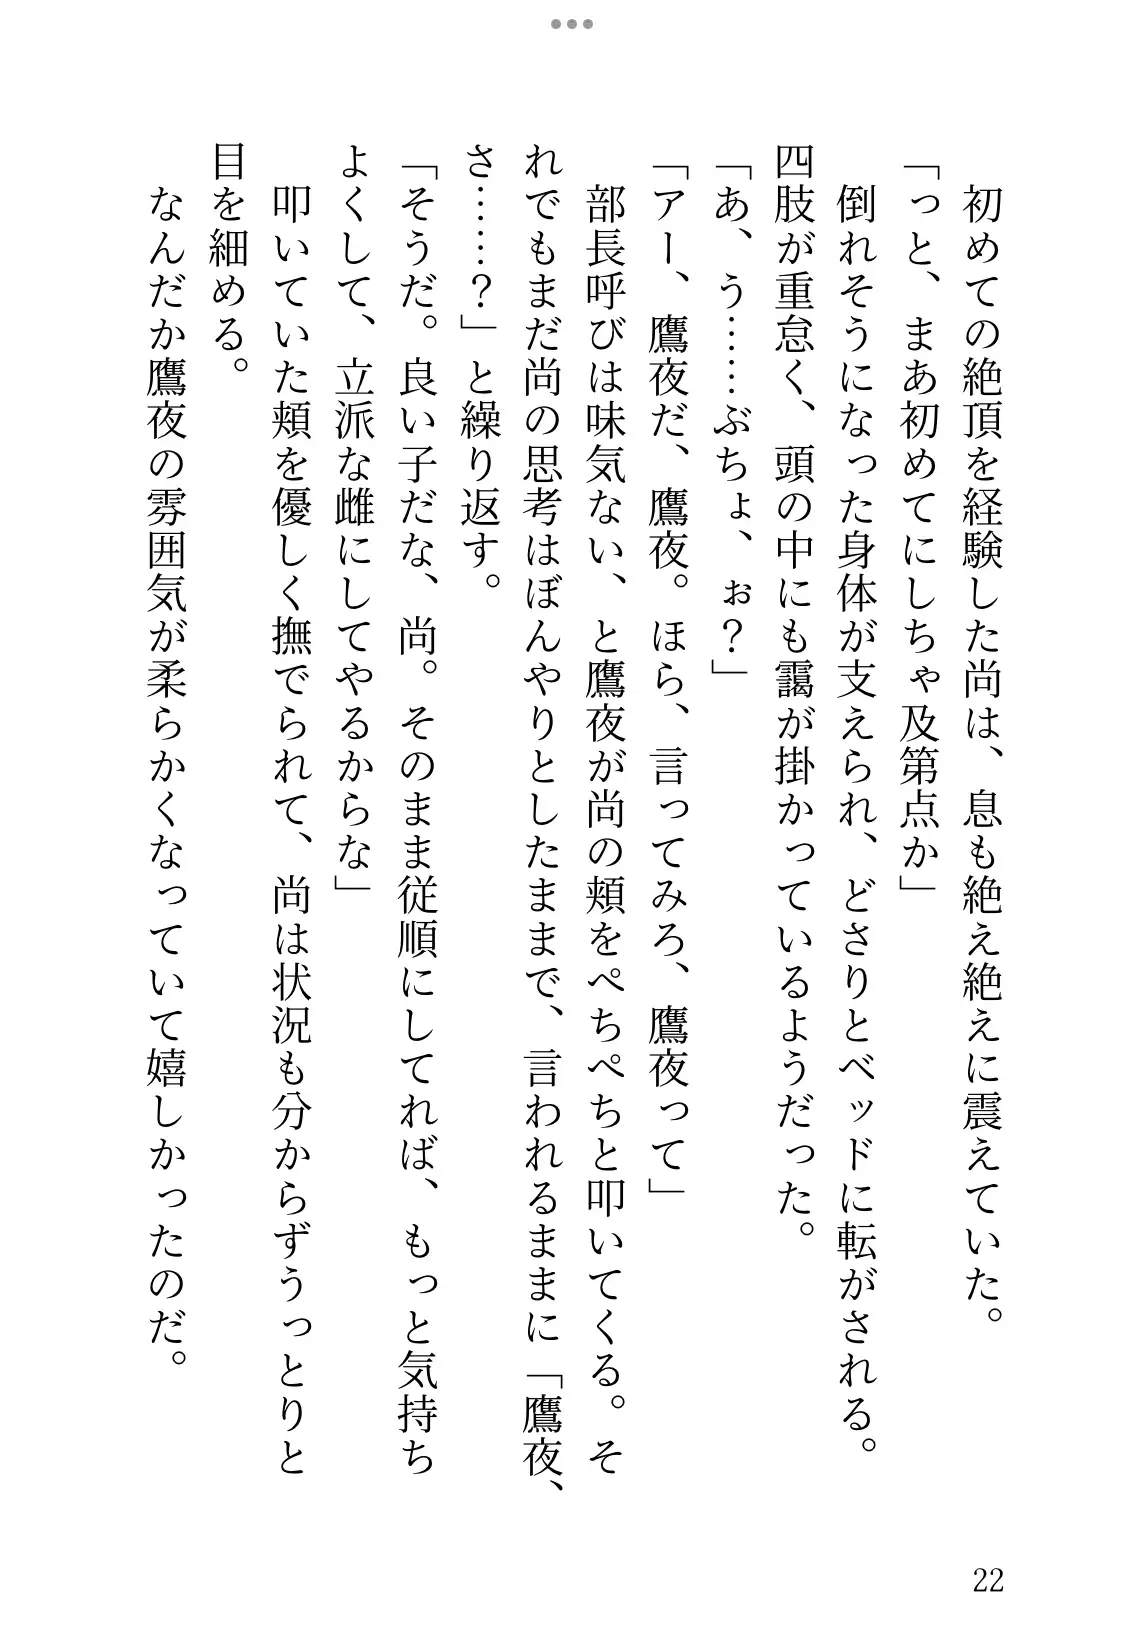 初めての絶頂を経験した尚は、息も絶え絶えに震えていた。
「っと、まあ初めてにしちゃ及第点か」
倒れそうになった身体が支えられ、どさりとベッドに転がされる。
四肢が重怠く、頭の中にも靄が掛かっているようだった。
「あ、う……ぶちょ、ぉ？」
「アー、鷹夜だ、鷹夜。ほら、言ってみろ、鷹夜って」
部長呼びは味気ない、と鷹夜が尚の頬をぺちぺちと叩いてくる。そ
れでもまだ尚の思考はぼんやりとしたままで、言われるままに「鷹夜、
さ……？」と繰り返す。
「そうだ。良い子だな、尚。そのまま従順にしてれば、もっと気持ち
よくして、立派な雌にしてやるからな」
叩いていた頬を優しく撫でられて、尚は状況も分からずうっとりと
目を細める。
なんだか鷹夜の雰囲気が柔らかくなっていて嬉しかったのだ。
22